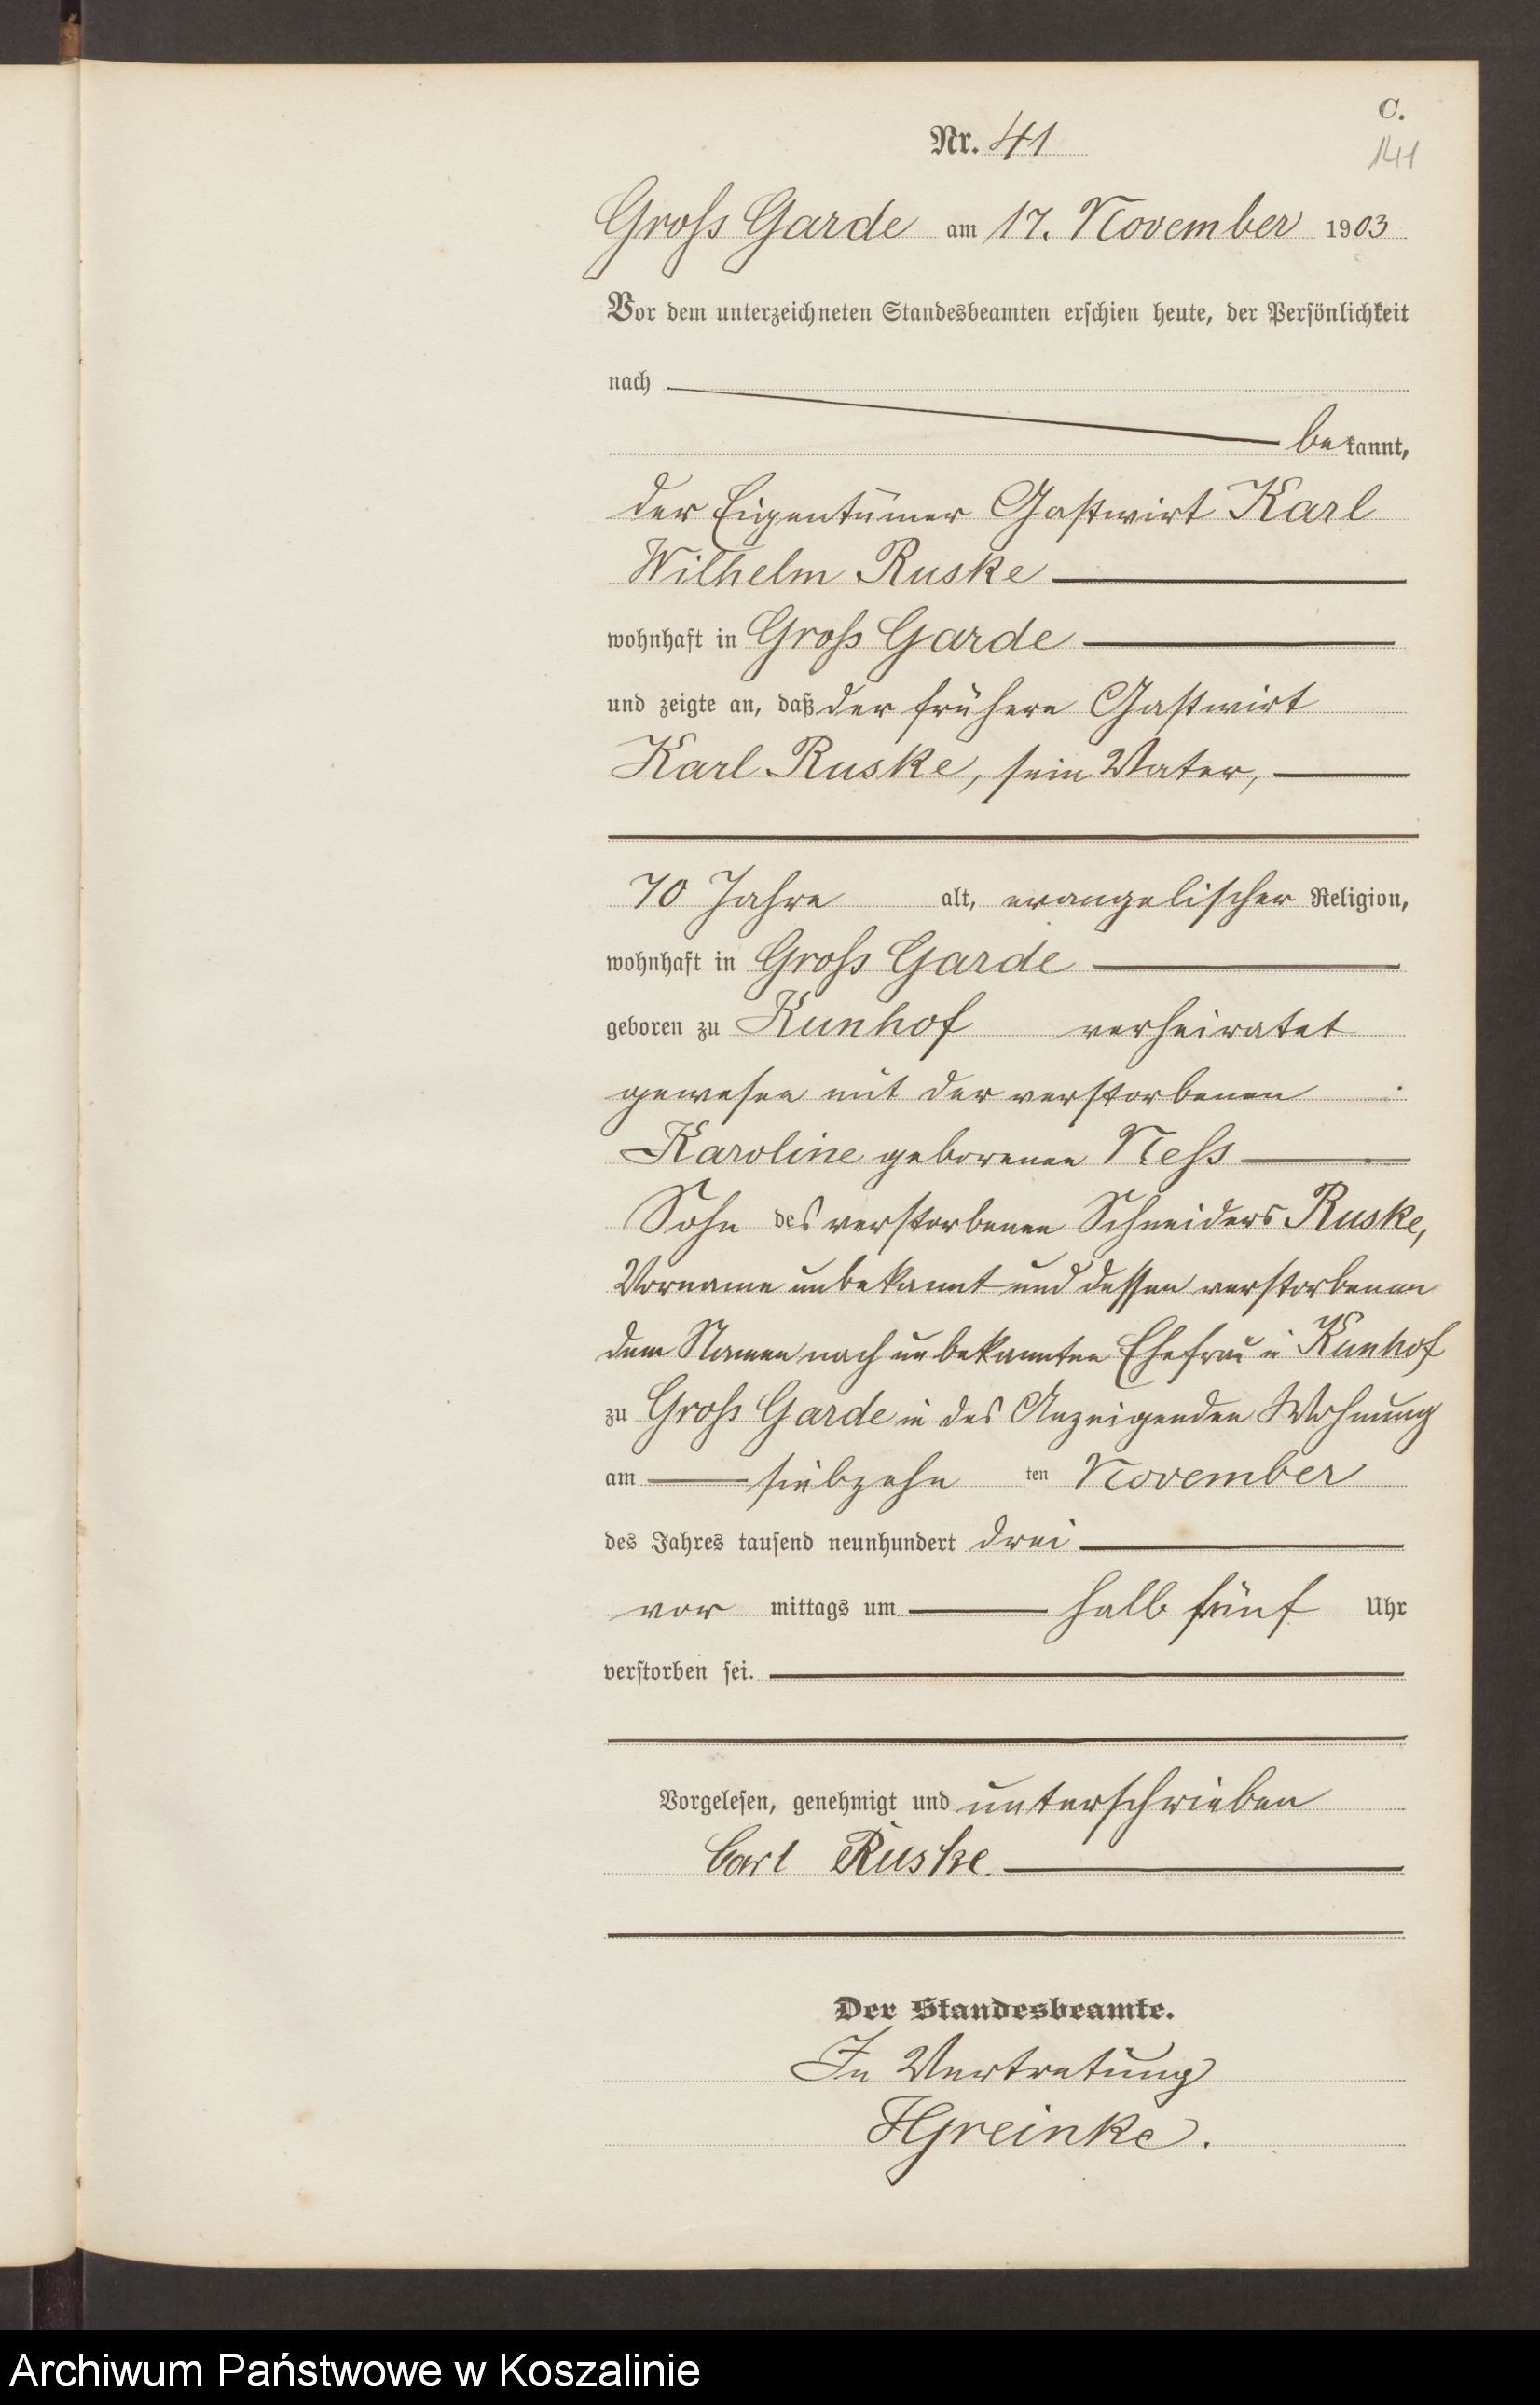 C.
Nr. 41
141
Groß Garde am 17. November 1903
Vor dem unterzeichneten Standesbeamten erschien heute, der Persönlichkeit
nach
bekannt,
der Eigentümer Gastwirt Karl
Wilhelm Ruske
wohnhaft in Groß Garde
und zeigte an, daß der frühere Gastwirt
Karl Ruske, sein Vater,
70 Jahre alt, evangelischer Religion,
wohnhaft in Groß Garde
geboren zu Kunhof verheiratet
gewesen mit der verstorbenen
Karoline geborenen Neß
Sohn des verstorbenen Schneiders Ruske,
Vorname unbekannt und dessen verstorbenen
dem Namen nach unbekannten Ehefrau in Kunhof
zu Groß Garde in des Anzeigenden Wohnung
am siebzehn ten November
des Jahres tausend neunhundert drei
vor mittags um halb fünf Uhr
verstorben sei.
Vorgelesen, genehmigt und unterschrieben
Carl Ruske
Der Standesbeamte.
In Vertretung
HGreinke.
Archiwum Państwowe w Koszalinie